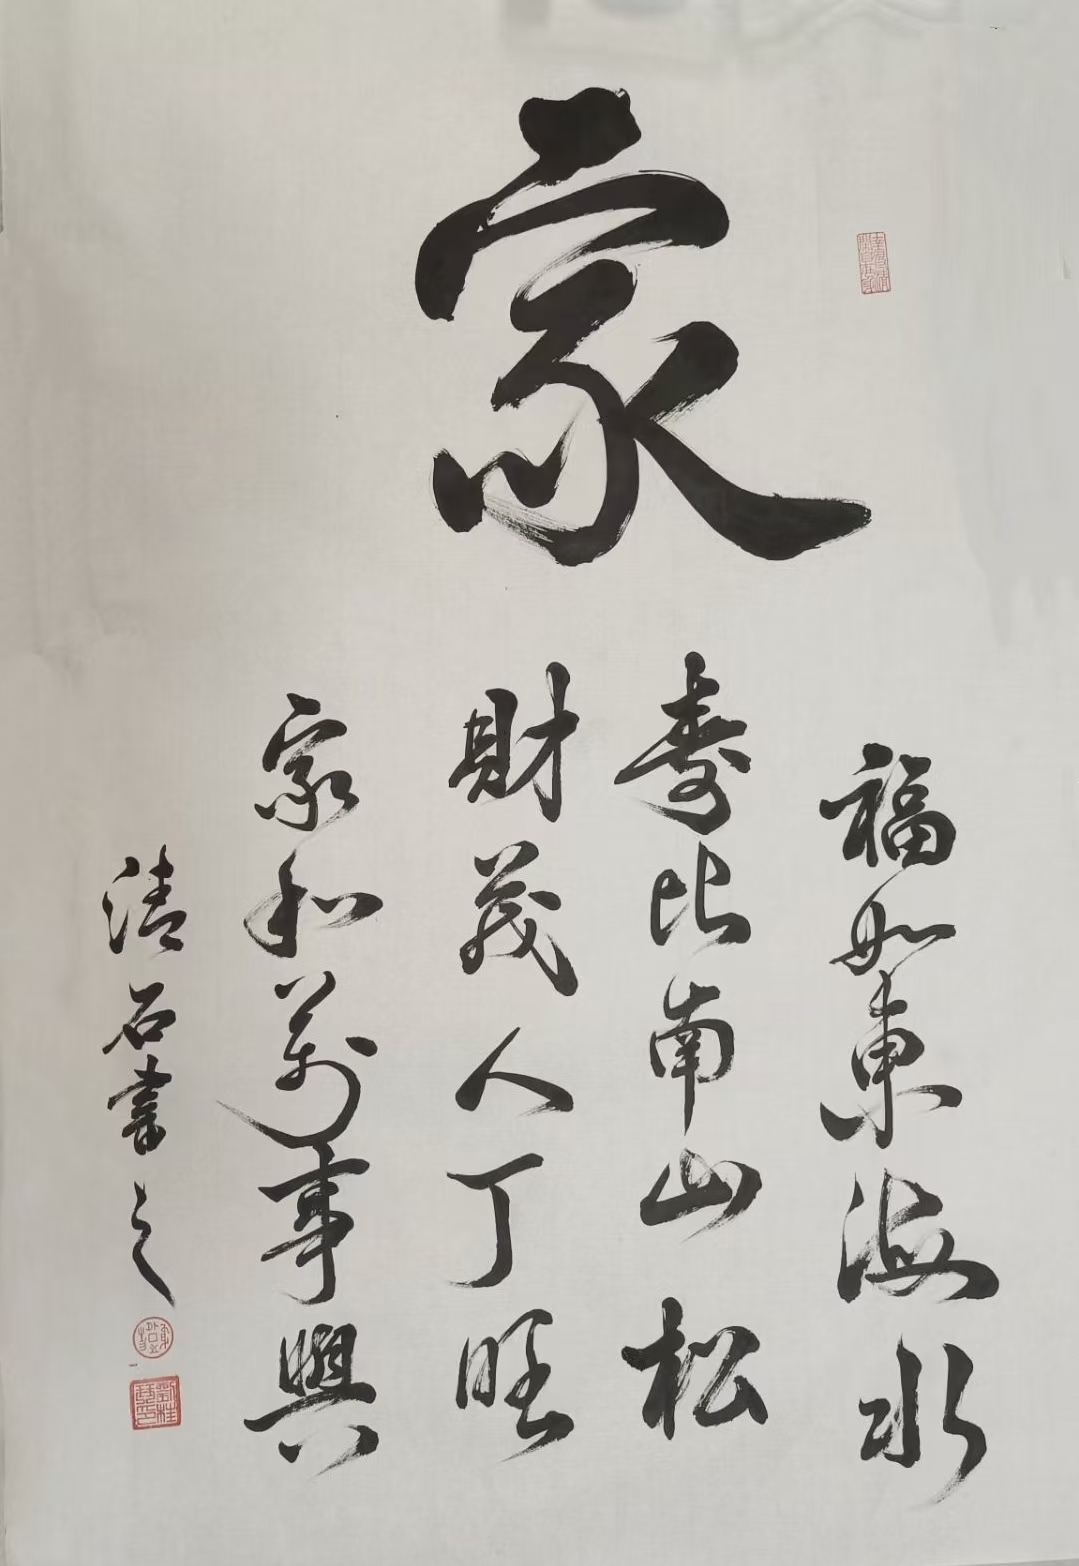 家
福如東海水
壽比南山松
財茂人丁旺
家和萬事興
清石書之